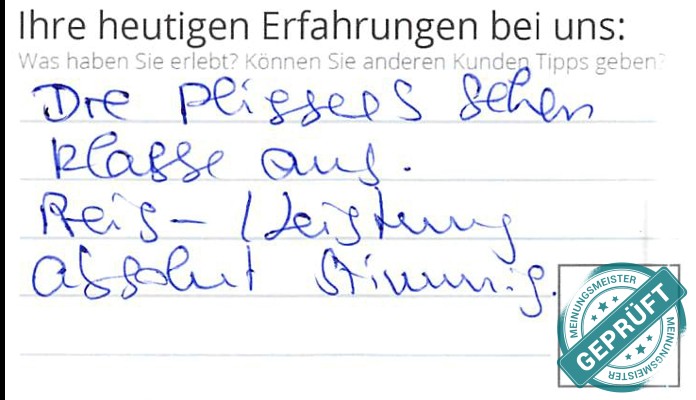 Ihre heutigen Erfahrungen bei uns:
Was haben Sie erlebt? Können Sie anderen Kunden Tipps geben?
Die Plissees sehen
klasse aus.
Preis-/Leistung
absolut stimmig.
MEINUNGSMEISTER
GEPRÜFT
MEINUNGSMEISTER